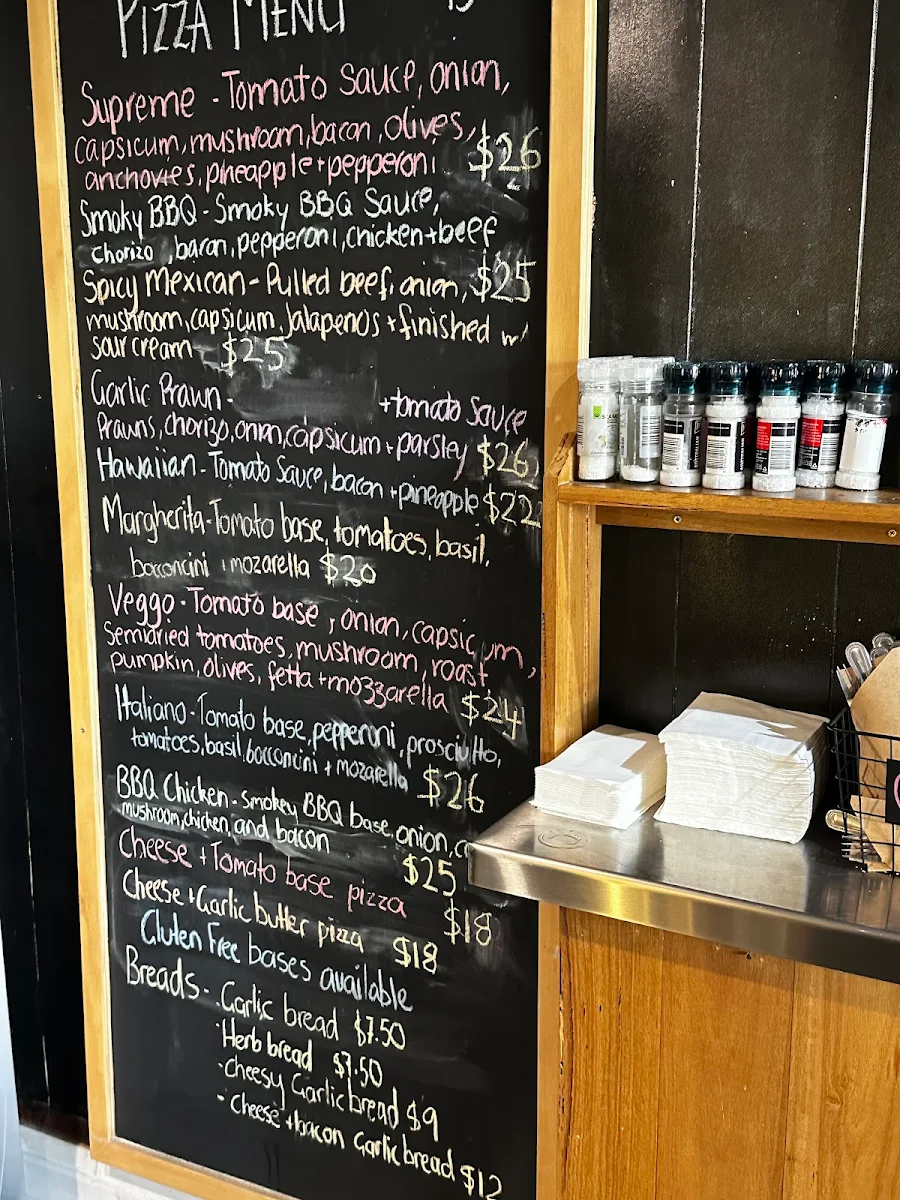 PIZZA MENU
Supreme - Tomato Sauce, onion,
capsicum, mushroom, bacon, olives,
anchovies, pineapple + pepperoni $26
Smoky BBQ - Smoky BBQ Sauce,
Chorizo, bacon, pepperoni, chicken + beef
$25
Spicy Mexican - Pulled beef, onion,
mushroom, capsicum, Jalapenos + finished w/
sour cream - $25
Garlic Prawn - + tomato Sauce
Prawns, chorizo, onion, capsicum + parsley $26
Hawaiian - Tomato Sauce, bacon + pineapple $22
Margherita - Tomato base, tomatoes, basil,
bocconcini + mozarella $20
Veggo - Tomato base, onion, capsicum,
Semidried tomatoes, mushroom, roast
pumpkin, olives, fetta + mozzarella $24
Italiano - Tomato base, pepperoni, prosciutto,
tomatoes, basil, bocconcini + mozarella $26
BBQ Chicken - Smokey BBQ base, onion,
mushroom, chicken, and bacon $25
Cheese + Tomato base pizza $18
Cheese + Garlic butter pizza $18
Gluten Free bases available
Breads - . Garlic bread $7.50
· Herb bread $7.50
- Cheesy Garlic bread $9
· Cheese + bacon Garlic bread $12